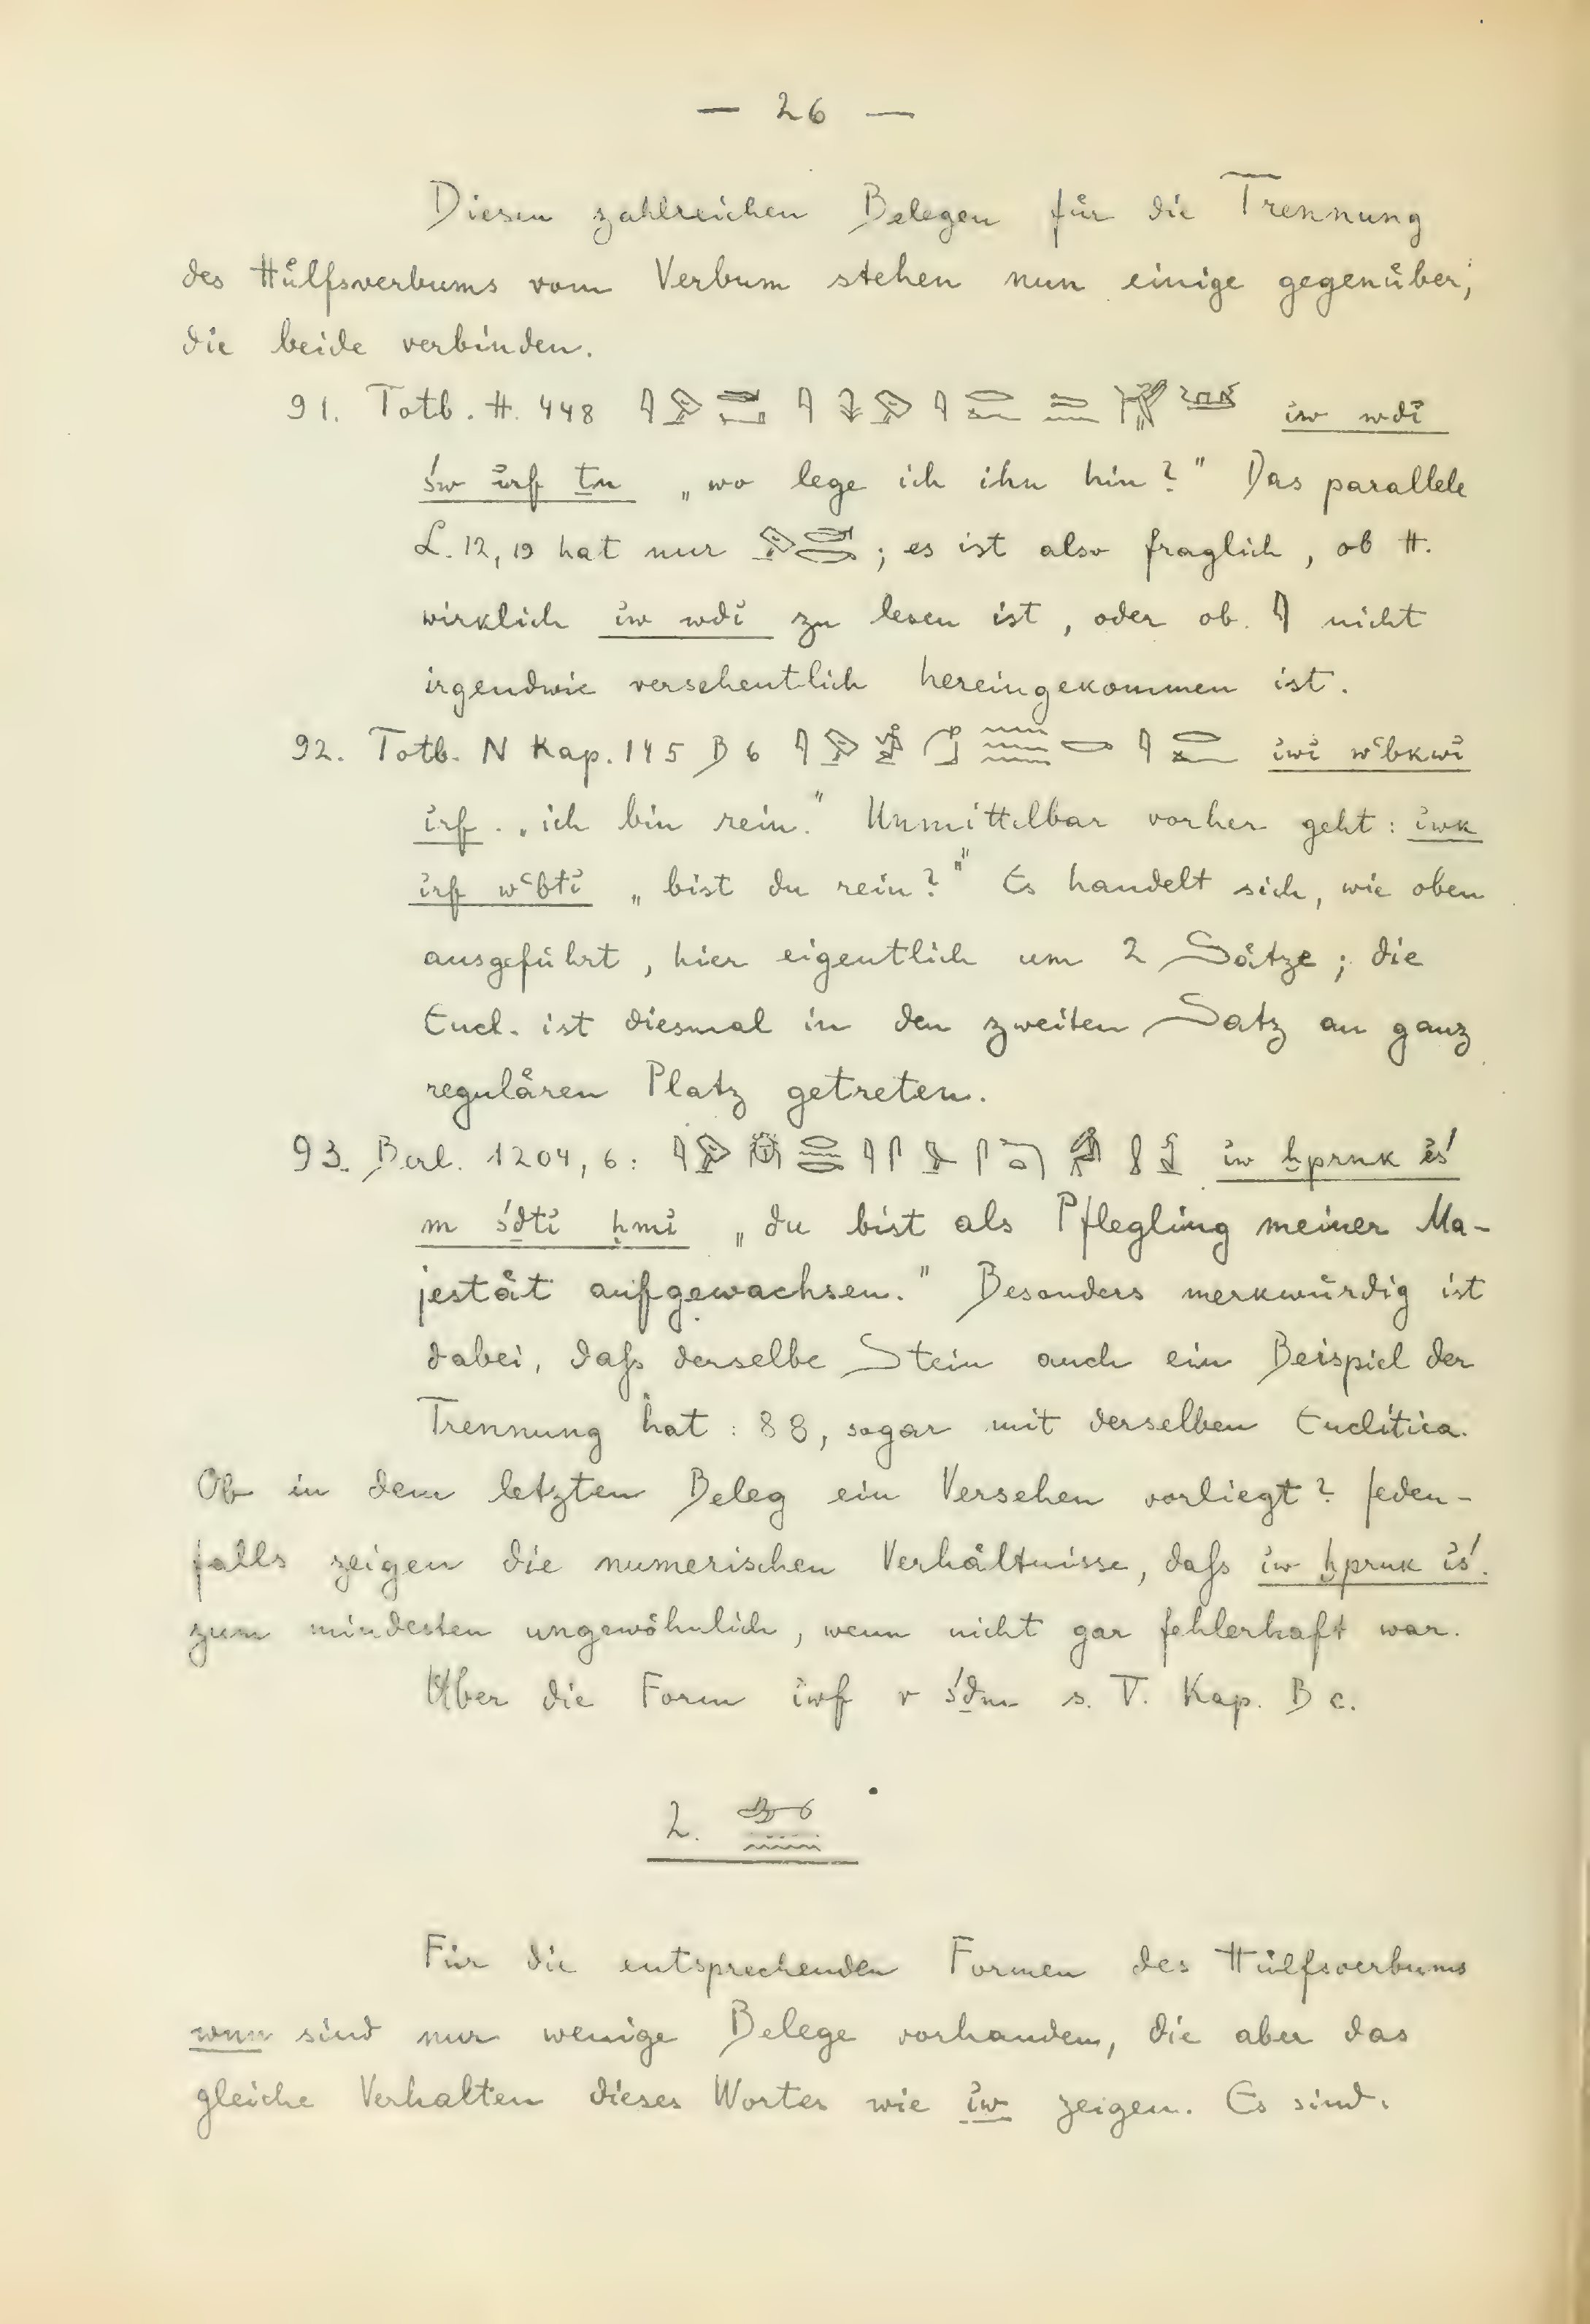 — 26 —
Diesen zahlreichen Belegen für die Trennung
des Hülfsverbums vom Verbum stehen nun einige gegenüber,
die beide verbinden.
91. Totb. H. 448 iw wdi
św irf ṯn „wo lege ich ihn hin?" Das parallele
L. 12, 19 hat nur ; es ist also fraglich, ob H.
wirklich iw wdi zu lesen ist, oder ob 𓇋 nicht
irgendwie versehentlich hereingekommen ist.
92. Totb. N Kap. 145 B 6 iwi wʿbkwi
irf. „ich bin rein." Unmittelbar vorher geht: iwk
irf wʿbti „bist du rein?" Es handelt sich, wie oben
ausgeführt, hier eigentlich um 2 Sätze; die
Encl. ist diesmal in den zweiten Satz an ganz
regulären Platz getreten.
93. Berl. 1204, 6: iw ḫprnk iś
m śḏti ḥmi „du bist als Pflegling meiner Ma-
jestät aufgewachsen." Besonders merkwürdig ist
dabei, daſs derselbe Stein auch ein Beispiel der
Trennung hat: 88, sogar mit derselben Enclitica.
Ob in dem letzten Beleg ein Versehen vorliegt? Jeden-
falls zeigen die numerischen Verhältnisse, daſs iw ḫprnk iś.
zum mindesten ungewöhnlich, wenn nicht gar fehlerhaft war.
Über die Form iwf r śḏm s. V. Kap. B c.
2.
Für die entsprechenden Formen des Hülfsverbums
wnn sind nur wenige Belege vorhanden, die aber das
gleiche Verhalten dieses Wortes wie iw zeigen. Es sind: